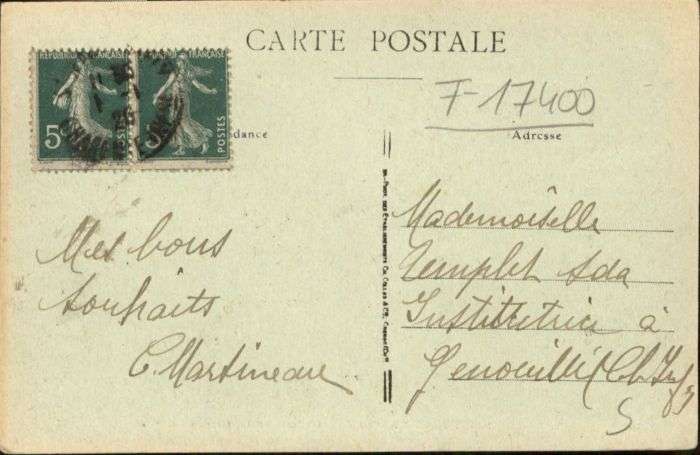 CARTE POSTALE
RÉPUBLIQUE FRANÇAISE
5
POSTES
POSTES
F-17400
dance
Adresse
Mes bons
souhaits
C. Martineau
Mademoiselle
Templet Ada
Institutrice à
Genouillé (Ch Inf
5